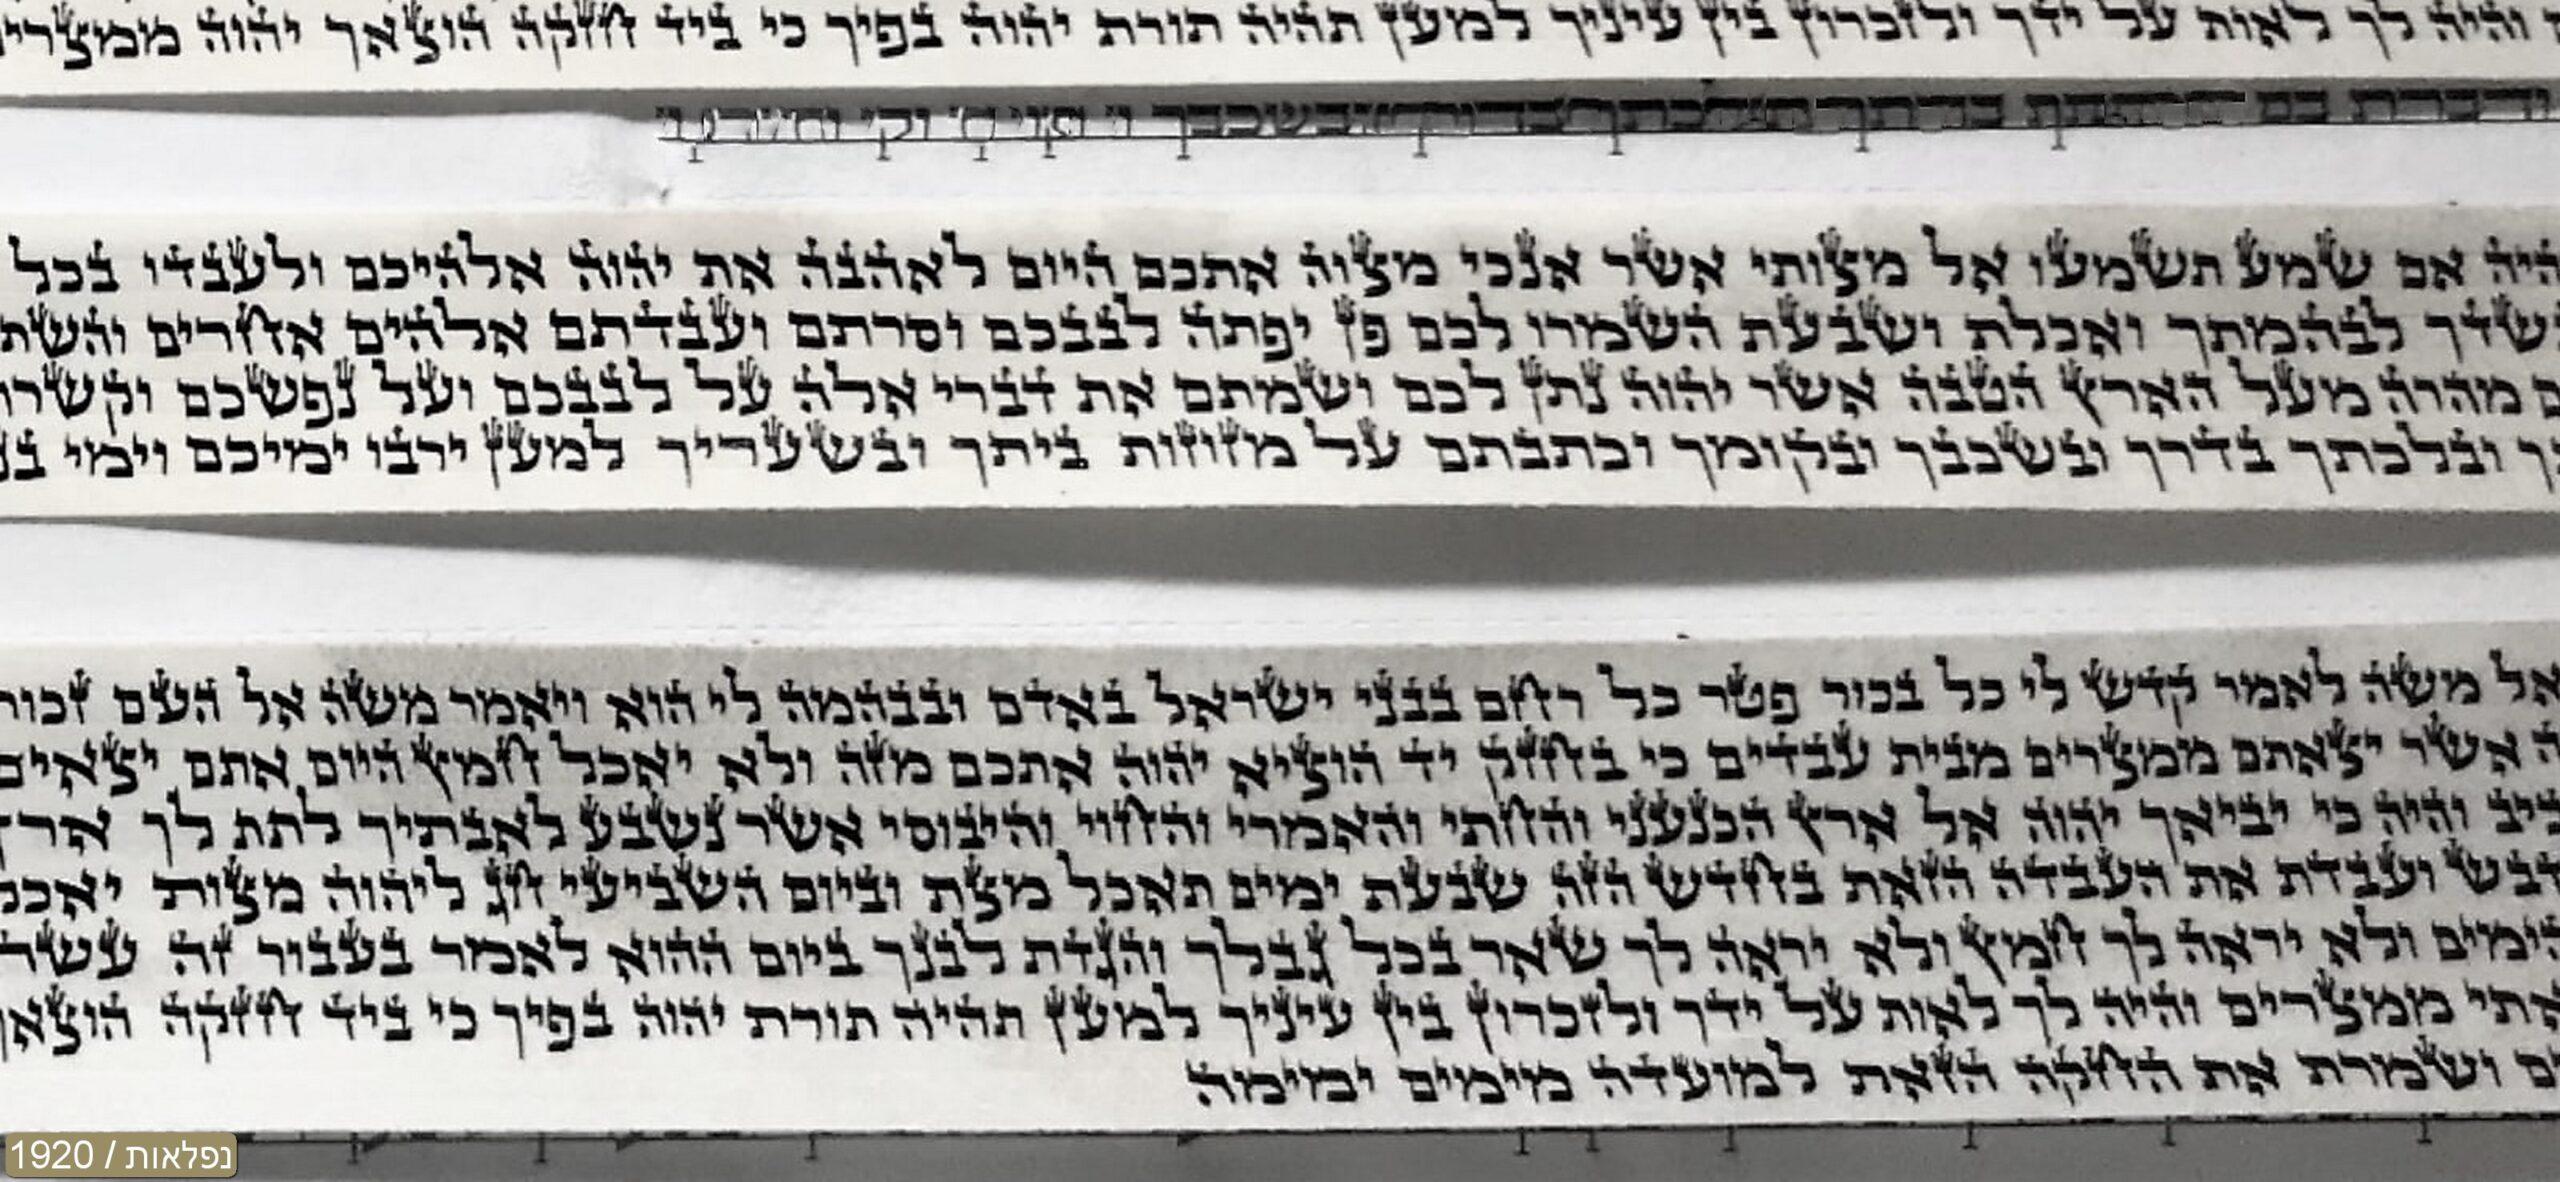 והיה לך לאות על ידך ולזכרון בין עיניך למען תהיה תורת יהוה בפיך כי ביד חזקה הוצאך יהוה
ודברת בם
היה אם שמע תשמעו אל מצותי אשר אנכי מצוה אתכם היום לאהבה את יהוה אלהיכם ולעבדו בכל
לבהמתך ואכלת ושבעת השמרו לכם פן יפתה לבבכם וסרתם ועבדתם אלהים אחרים
מהרה מעל הארץ הטבה אשר יהוה נתן לכם ושמתם את דברי אלה על לבבכם ועל נפשכם
ובלכתך בדרך ובשכבך ובקומך וכתבתם על מזוזות ביתך ובשעריך למען ירבו ימיכם וימי
אל משה לאמר קדש לי כל בכור פטר כל רחם בבני ישראל באדם ובבהמה לי הוא ויאמר משה אל העם זכור
אשר יצאתם ממצרים מבית עבדים כי בחזק יד הוציא יהוה אתכם מזה ולא יאכל חמץ היום אתם יצאים
והיה כי יביאך יהוה אל ארץ הכנעני והחתי והאמרי והחוי והיבוסי אשר נשבע לאבתיך לתת לך ארץ
דבש ועבדת את העבדה הזאת בחדש הזה שבעת ימים תאכל מצת וביום השביעי חג ליהוה מצות יאכל
הימים ולא יראה לך חמץ ולא יראה לך שאר בכל גבלך והגדת לבנך ביום ההוא לאמר בעבור זה עשה
ממצרים והיה לך לאות על ידך ולזכרון בין עיניך למען תהיה תורת יהוה בפיך כי ביד חזקה הוצאך
ושמרת את החקה הזאת למועדה מימים ימימה
נפלאות / 1920